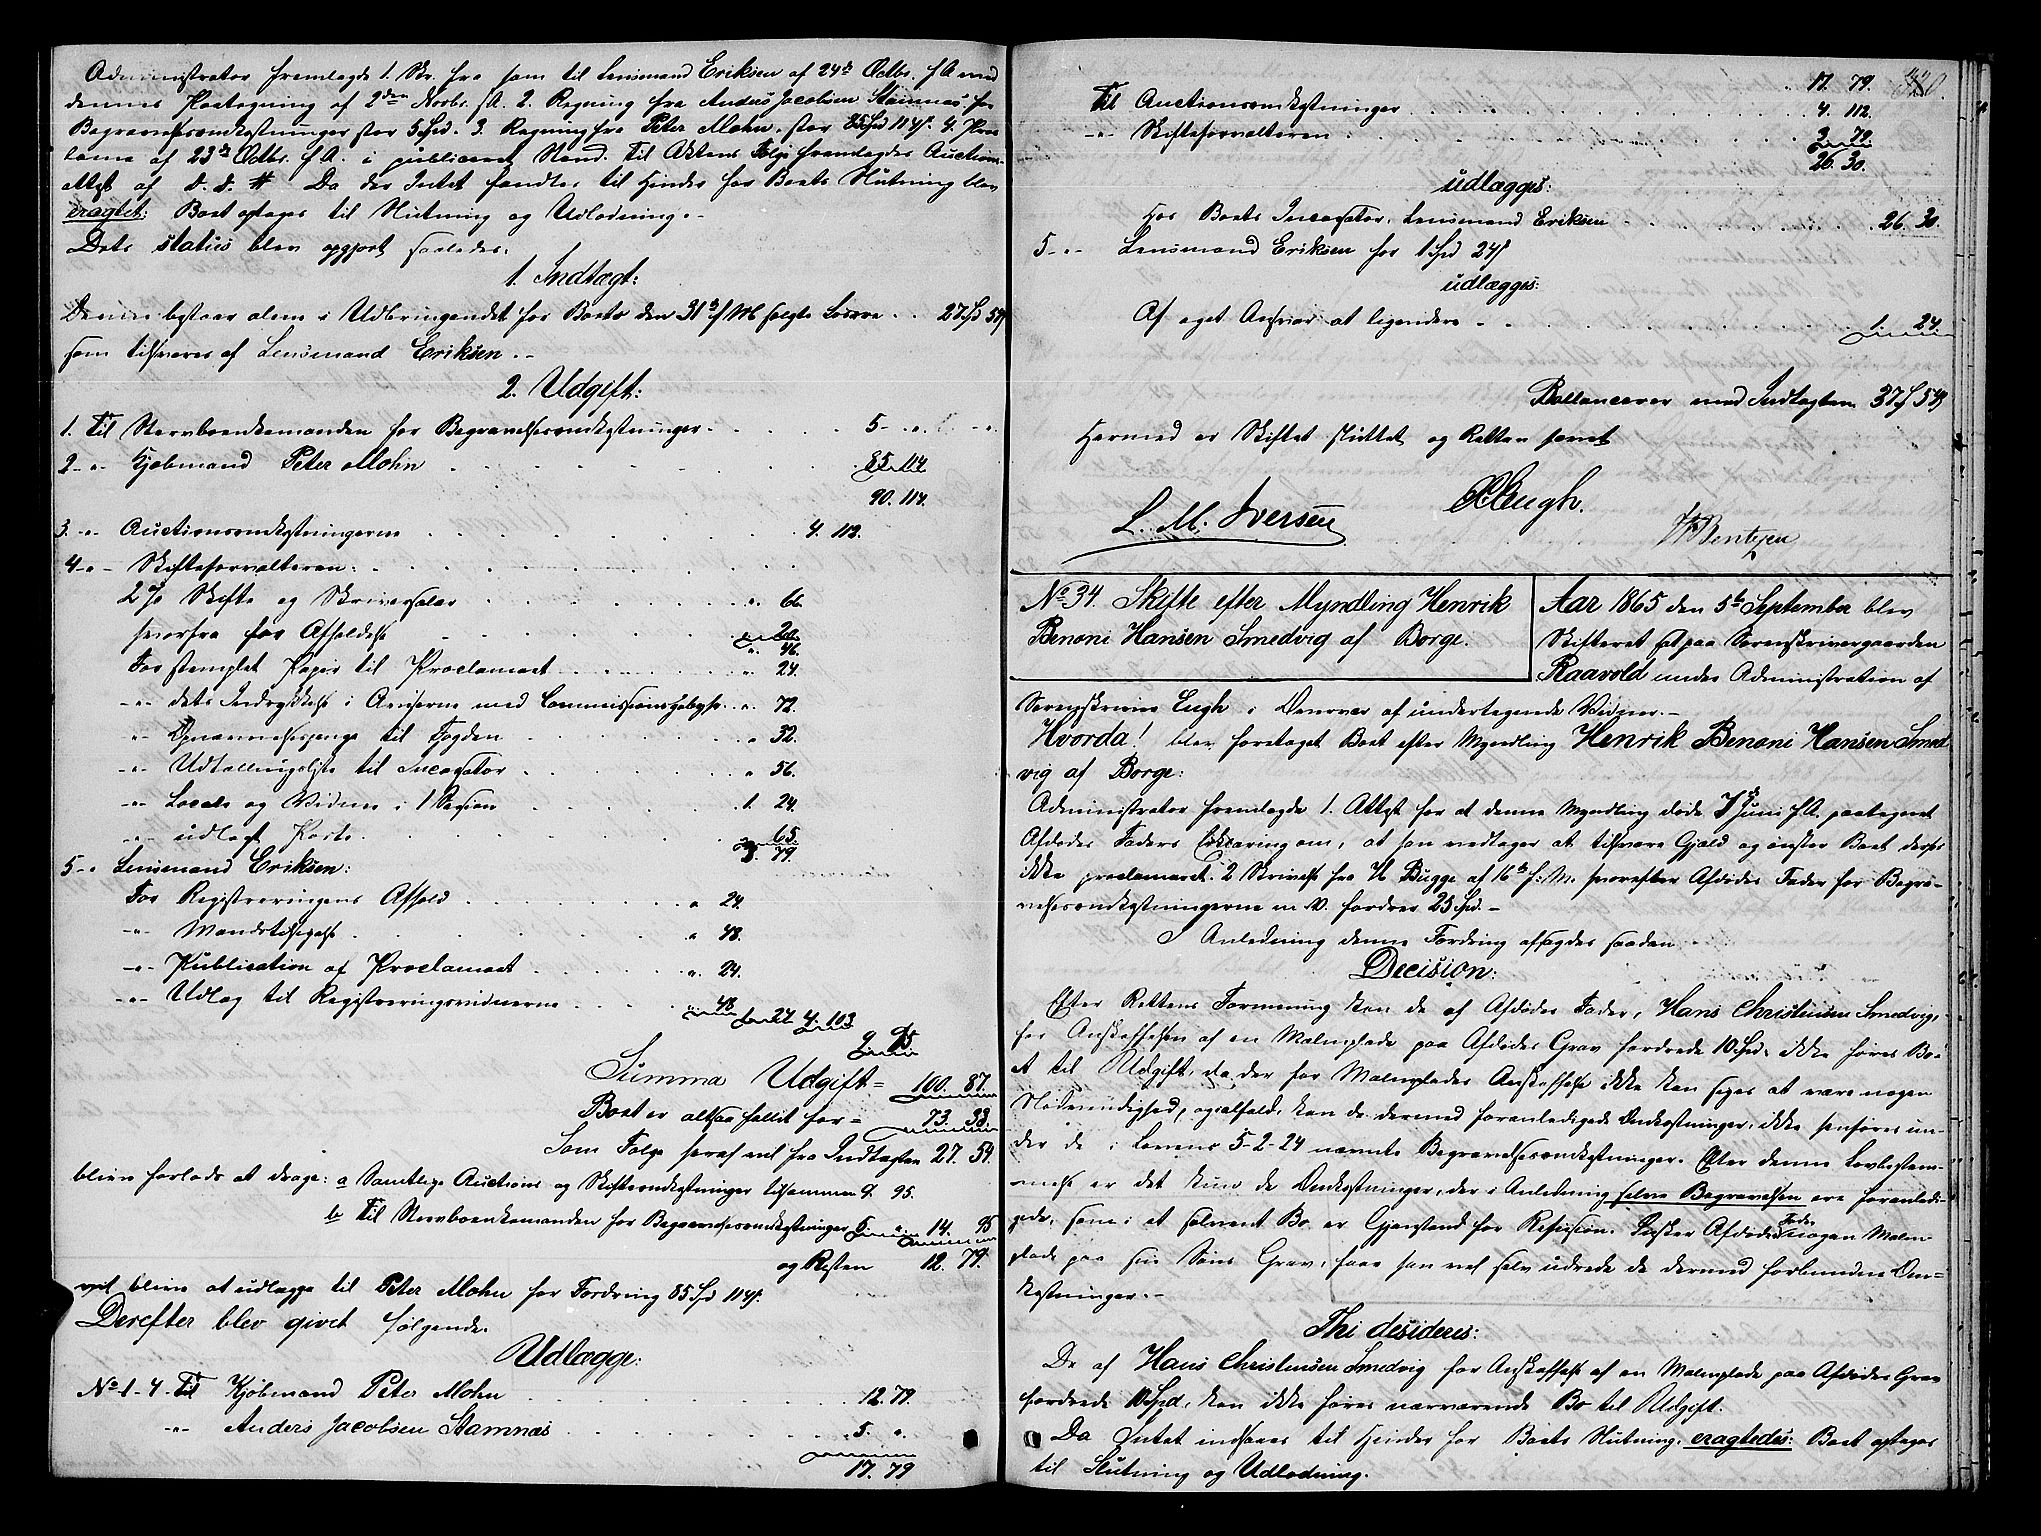 Administrator fremlagde 1. Skr. fra ham til Lensmand Eriksen af 24de Octbr. f A med
dennes Paategning af 2den Novbr. f A. 2. Regning fra Anders Jacobsen Stamnæs for
Begravelsesomkostninger stor 5 Spd. 3. Regning fra Peter Mohn, stor 85 Spd 114 s. 4. Proc
lama af 23de Octbr. f A. i publiceret Stand. Til Aktens Følge fremlagdes Auctions
attest af D. D. # Da der Intet fandtes til Hinder for Boets Slutning blev
eragtet: Boet optages til Slutning og Udlodning.-
Dets status blev opgjort saaledes:
1. Indtægt:
Denne bestaar alene i Udbringendet for Boets den 31te f M solgte Løsøre . . 27 Spd 54 s
som tilsvares af Lensmand Eriksen.-
2. Udgift:
1. Til Stervboenkemanden for Begravelsesomkostninger . . . . . 5 - "
2 - " - Kjøbmand Peter Mohn . . . . . 85. 114.
90. 114.
3. - " - Auctionsomkostningerne . . . . . 4. 112.
4 - " - Skifteforvalteren: . . . . .
2 % Skifte og Skriversalær . . . . . " 66.
hvorfra for Afholdelse . . . . . 20
" 46.
For stemplet Papir til Proclamaet . . . . . " 24.
- " - dets Indrykkelse i Aviserne med Commissionsgebyhr . . " 72.
- " - Opnævnelsespenge til Fogden . . . . . " 32.
- " - Udtællingsliste til Incassator . . . . . " 56.
- " - Locale og Vidner i 1 Session . . . . . 1. 24.
- " - udlagt Porto . . . . . 65.
3. 79.
5 - " Lensmand Eriksen:
For Registreringens Afhold . . . . . " 24.
- " - Mandtilsigelse . . . . . " 48.
- " - Publication af Proclamaet . . . . . " 24.
- " - Udlæg til Registreringsvidnerne . . . . . " 48
1. 24 4. 103
9. 95
Summa Udgift = 100. 87.
Boet er altsaa fallit for = 73. 33.
Som Følge heraf vil fra Indtægten 27. 54.
blive forlods at drage: a Samtlige Auctions og Skifteomkostninger tilsammen 9. 95.
b Til Stervboenkemanden for Begravelsesomkostninger 5. " 14. 95
og Resten 12. 79.
vil blive at udlægge til Peter Mohn for Fordring 85 Spd 114 s.
Derefter blev givet følgende.
Udlægge:
No 1 - 4 - Til Kjøbmand Peter Mohn . . . . . 12. 79.
- " - Anders Jacobsen Stamnæs . . . . . 5. "
17. 79
17. 79.
Til Auctionsomkostninger . . . . . 4. 112.
- " - Skifteforvalteren . . . . . 3. 79.
26. 30.
udlægges:
Hos Boets Incassator, Lensmand Eriksen . . . . . 26. 30.
5 - " - Lensmand Eriksen for 1 Spd 24 s
udlægges:
Af eget Ansvar at ligendere . . . . . 1. 24.
Ballancerer med Indtægten 37 s 54 s
Hermed er Skiftet sluttet og Retten hævet
L. M. Iversen Eugh. Bentzen
No 34. Skifte efter Myndling Henrik
Benoni Hansen Smedvig af Borge.
Aar 1865 den 5te September blev
Skifteret sat paa Sorenskrivergaarden
Raavold under Administration af
Sorenskriver Eugh i Overvær af undertegnede Vidner.-
Hvorda! blev foretaget Boet efter Myndling Henrik Benoni Hansen Smed
vig af Borge:
Administrator fremlagde 1. Attest for at denne Myndling døde 7de Juni f A. paategnet
Afdødes Faders Erklæring om, at han vedtager at tilsvare Gjæld og ønsker Boet derfor
ikke proclameret. 2 Skrivelse fra H Bugge af 16de f. M. hvorefter Afdødes Fader for Begra-
velsesomkostningerne m V. fordrer 25 Spd.-
I Anledning denne Fordring afsagdes saadan
Decision:
Efter Rettens Formening kan de af Afdødes Fader, Hans Christensen Smedvig,
for Anskaffelsen af en Malmplade paa Afdødes Grav fordrede 10 Spd. ikke føres Bo-
et til Udgift, da der for Malmplades Anskaffelse ikke kan siges at være nogen
Nødvendighed, og ialfald kan de dermed foranledigede Omkostninger ikke henføres un-
der de i Lovens 5-2-24 nævnte Begravelsesomkostninger. Efter denne Lovbestem-
melse er det kun de Omkostninger, der i Anledning selve Begravelsen ere foranledi-
gede, som i et solvent Bo er Gjenstand for Refusion. Ønsker Afdødes Fader nogen Malm-
plade paa sin Søns Grav, faar han vel selv udrede de dermed forbundne Om=
kostninger.-
Thi desideres:
De af Hans Christensen Smedvig for Anskaffelse af en Malmplade paa Afdødes Grav
fordrede 10 Spd. kan ikke føres nærværende Bo til Udgift.
Da Intet indsaaes til Hinder for Boets Slutning, eragtedes: Boet optages
til Slutning og Udlodning.